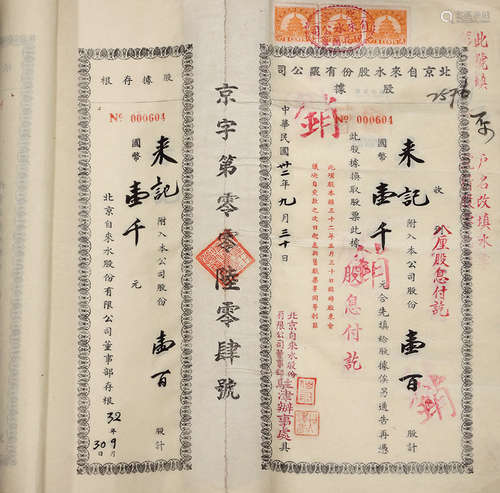 北京自來水股份有限公司
股據
No 000604
今收
來記
國幣壹千元合先填給股據俟另通告再憑
附入本公司股份壹百股計
此股據換取股票此據
中華民國卅二年九月三十日
北京自來水股份有限公司董事部駐津辦事處具
股息付訖
銷
銷
銷
外厘股息付訖
此號填
戶名改填水
2596
京字第零零陸零肆號
股據存根
No 000604
來記
附入本公司股份壹百股計
國幣壹千元
北京自來水股份有限公司董事部存根
32年9月30日